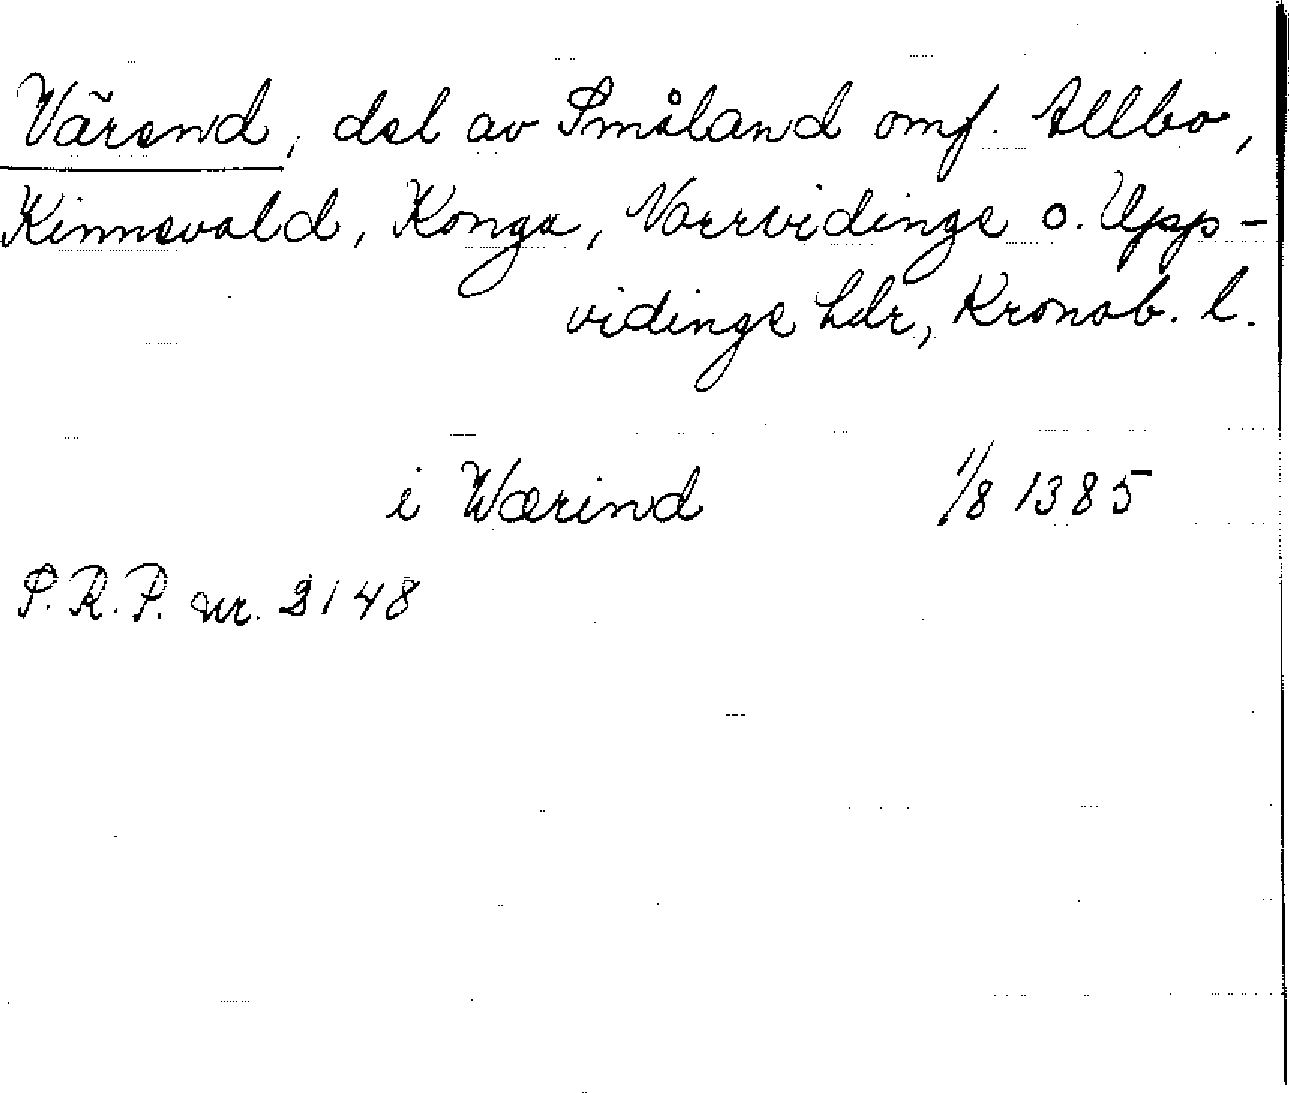 Värend, del av Småland omf. Allbo,
Kinnevald, Konga, Norrvidinge o. Upp-
vidinge hdr, Kronob. l.
i Wærind 1/8 1385
S.R.P. nr. 2148